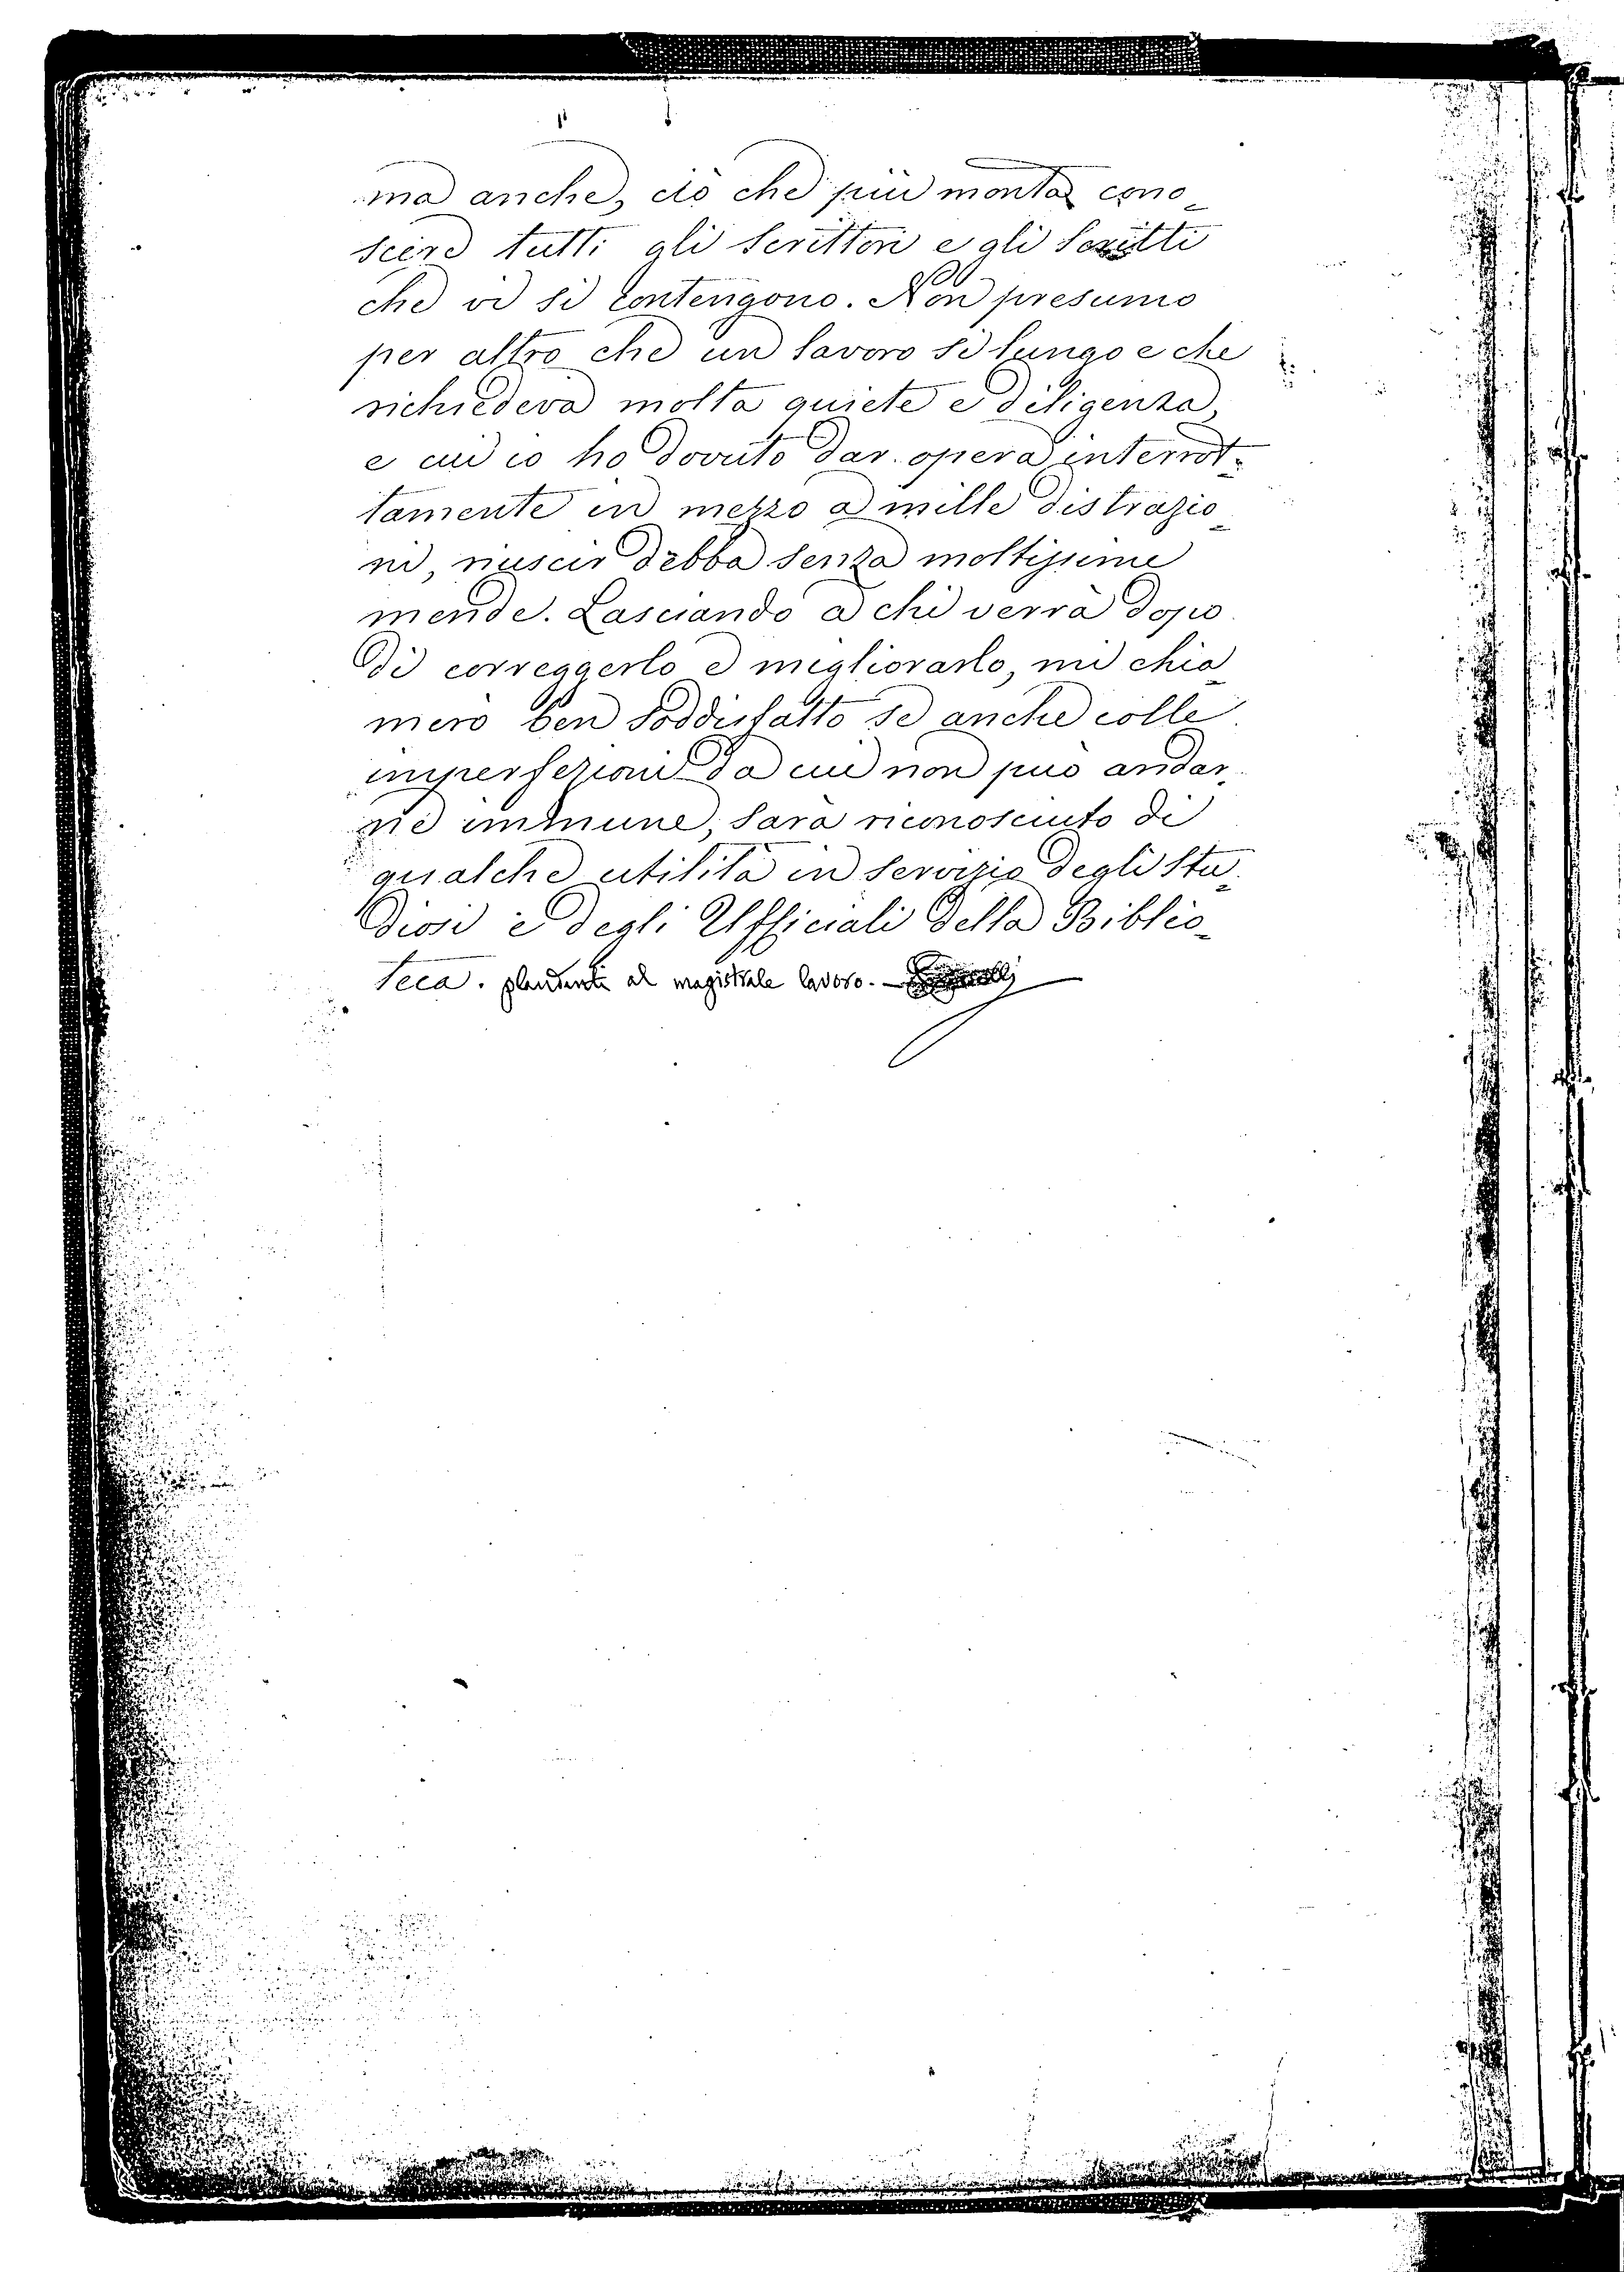 ma anche, ciò che più monta cono-
scere tutti gli Scrittori e gli Scritti
che vi si contengono. Non presumo
per altro che un lavoro sì lungo e che
richiedeva molta quiete e diligenza,
e cui io ho dovuto dar opera interrot-
tamente in mezzo a mille distrazio-
ni, riuscir debba senza moltissime
mende. Lasciando a chi verrà dopo
di correggerlo e migliorarlo, mi chia-
merò ben soddisfatto se anche colle
imperfezioni da cui non può andar-
ne immune, sarà riconosciuto di
qualche utilità in servizio degli Stu-
diosi e degli Ufficiali della Biblio-
teca. plaudenti al magistrale lavoro. —